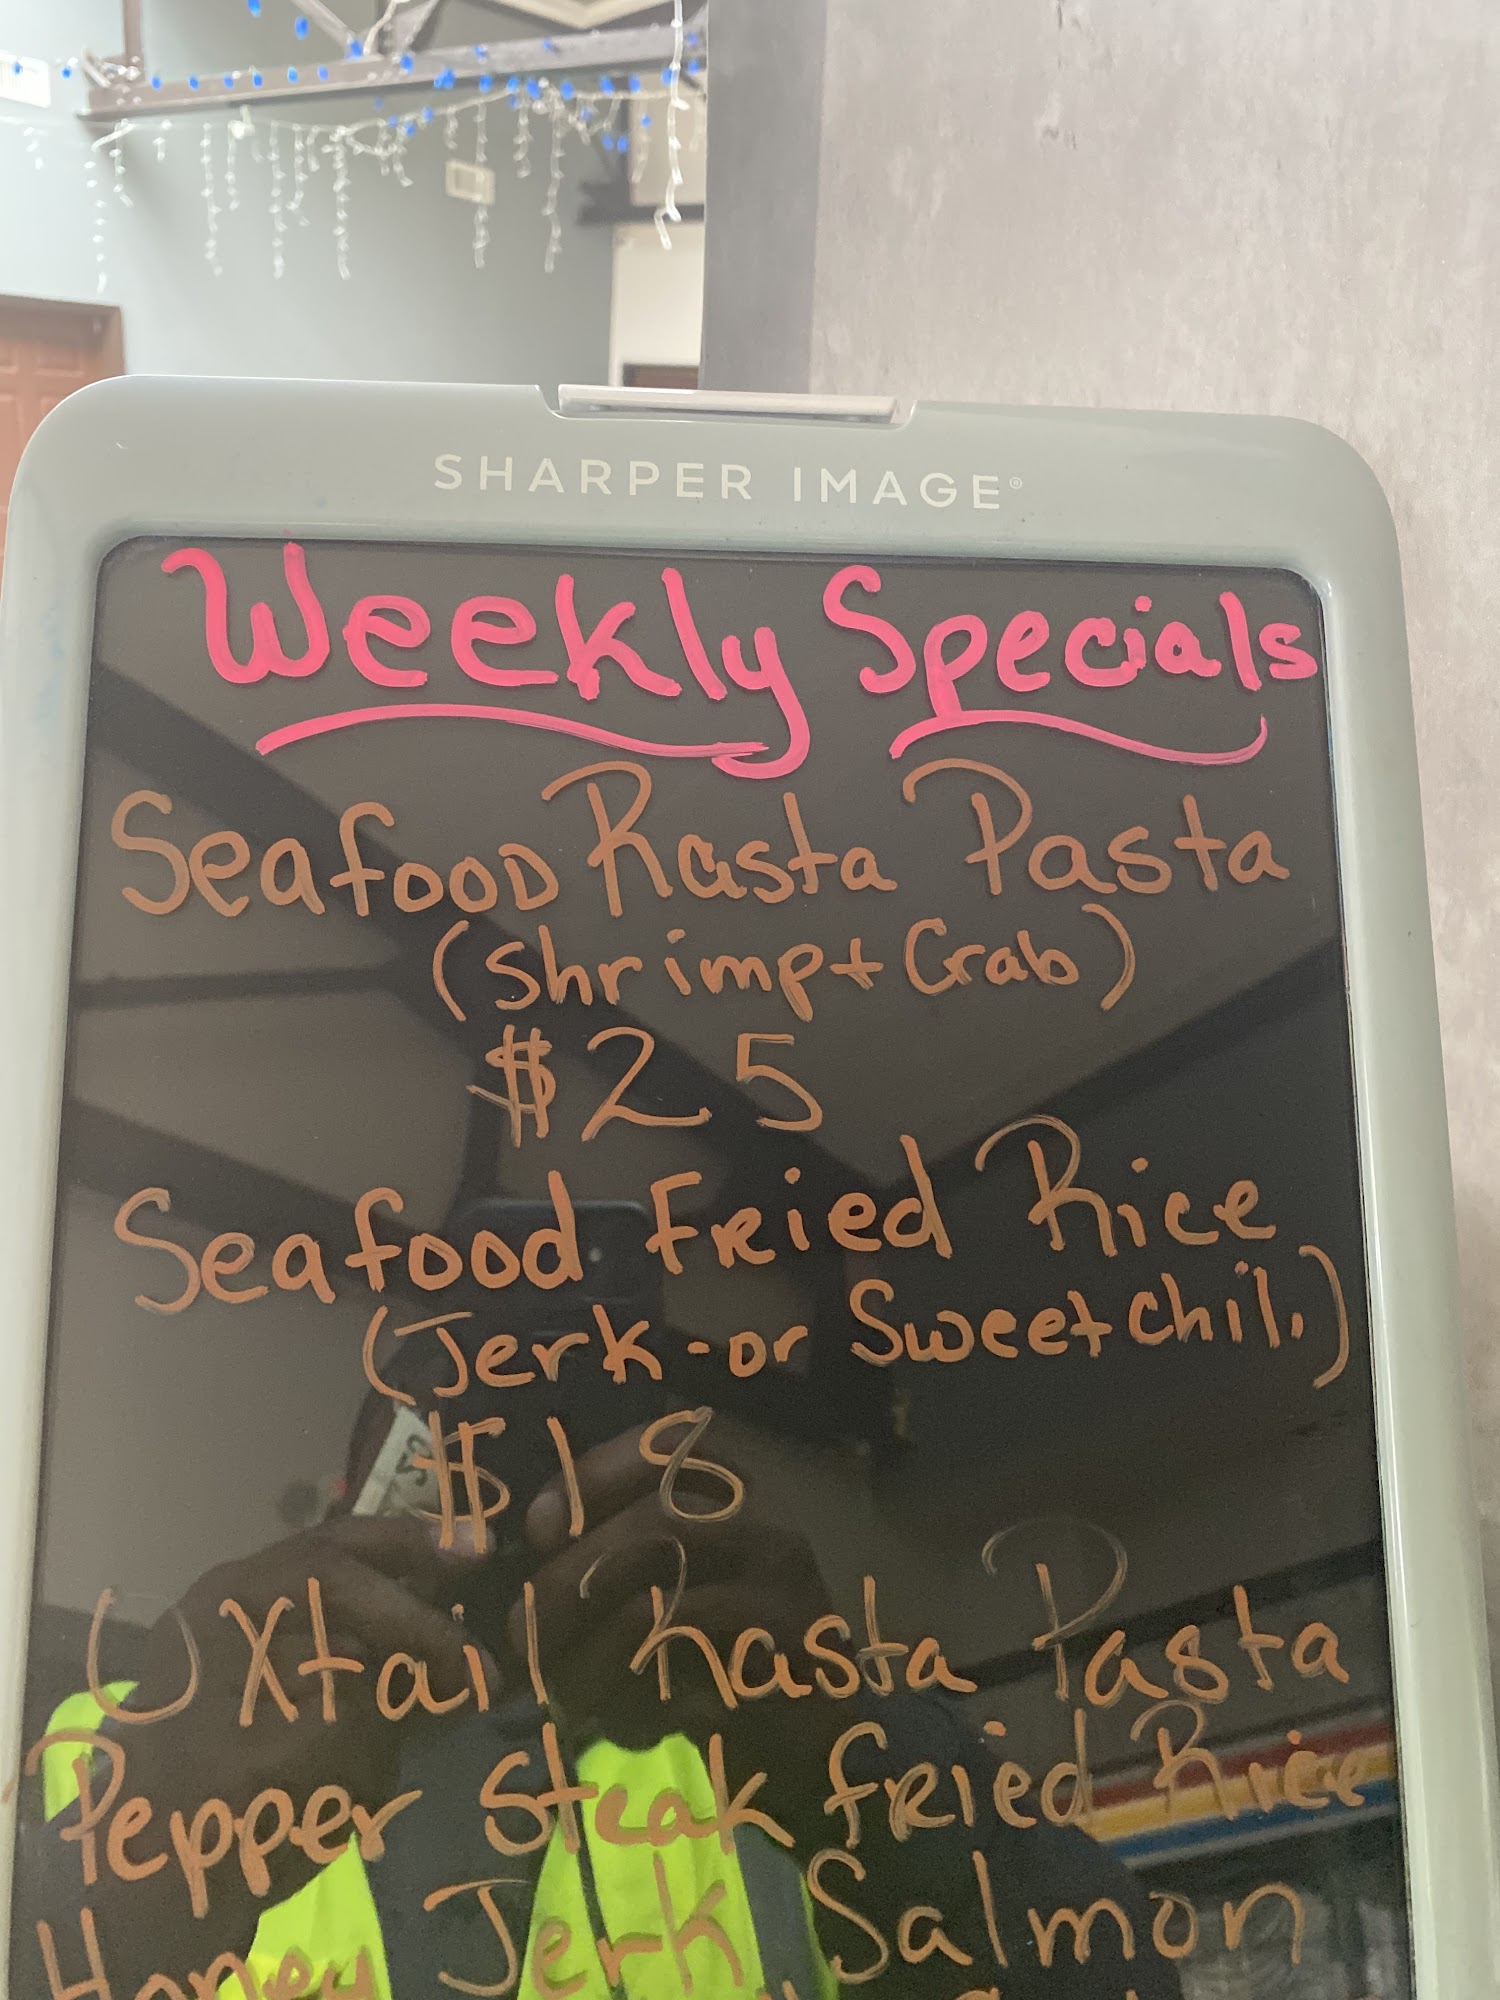 SHARPER IMAGE®
Weekly Specials
Seafood Rasta Pasta
(Shrimp + Crab)
$25
Seafood Fried Rice
(Jerk - or Sweet chili)
$18
Oxtail Rasta Pasta
Pepper Steak fried Rice
Honey Jerk Salmon